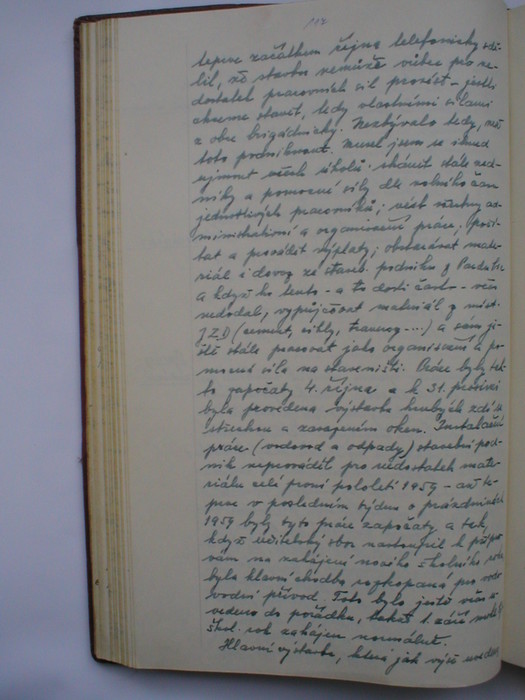 117
teprve začátkem října telefonicky sdě-
lil, že stavbu nemůže vůbec pro ne-
dostatek pracovních sil provést - jestli
chceme stavět, tedy vlastními silami
z obce brigádnicky. Nezbývalo tedy, než
toto podniknout. Musel jsem se ihned
ujmout všech úkolů: shánět stále zed-
níky a pomocné síly dle volného času
jednotlivých pracovníků; vést všechny ad-
ministrativní a organisační práce; počí-
tat a provádět výplaty; obstarávat mate-
riál i dovoz ze staveb. podniku z Pardubic
a když ho tento - a to dosti často - včas
nedodal, vypůjčovat materiál z míst.
JZD (cement, cihly, traversy...) a sám je-
ště stále pracovat jako organisační a po-
mocná síla na staveništi. Práce byly tak-
to započaty 4. října a k 31. prosinci
byla provedena výstavba hrubých zdí se
střechou a zasazením oken. Instalační
práce (vodovod a odpady) stavební pod-
nik neprováděl pro nedostatek mate-
riálu celé první pololetí 1959 - až te-
prve v posledním týdnu o prázdninách
1959 byly tyto práce započaty a tak,
když učitelský sbor nastoupil k přípra-
vám na zahájení nového školního roku
byla hlavní chodba rozkopaná pro vodo-
vodní přívod. Toto bylo ještě včas u-
vedeno do pořádku, takže 1. září mohl být
škol. rok zahájen normálně.
Hlavní výstavba, která jak výše uvedeno